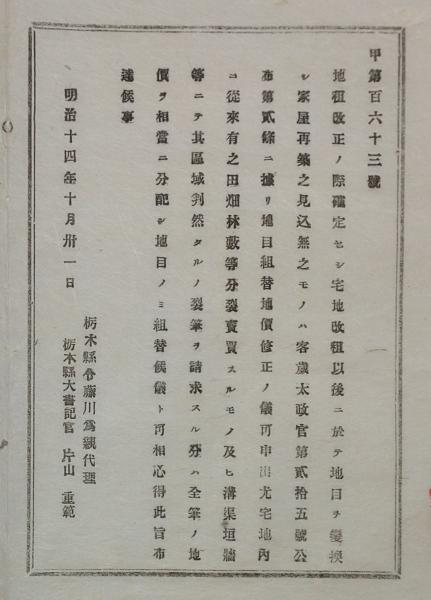 甲第百六十三號
地租改正ノ際確定セシ宅地改租以後ニ於テ地目ヲ變換
シ家屋再築之見込無之モノハ客歲太政官第貳拾五號公
布第貳條ニ據リ地目組替地價修正ノ儀可申出尤宅地內
ニ從來有之田畑林藪等分裂賣買スルモノ及ヒ溝渠垣牆
等ニテ其區域判然タルノ裂筆ヲ請求スル分ハ全筆ノ地
價ヲ相當ニ分配シ地目ノミ組替候儀ト可相心得此旨布
達候事
明治十四年十月卅一日
栃木縣令藤川爲親代理
栃木縣大書記官 片山 重範